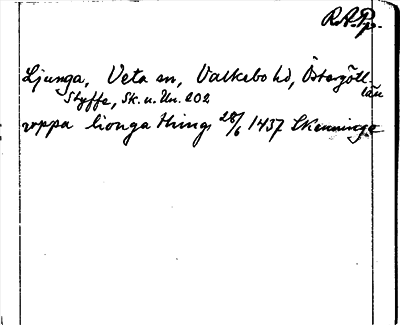 R.A.Pp.
Ljunga, Veta sn, Valkebo hd, Östergötl.
län
Styffe, Sk. u. Un. 202
vppa lionga thing 28/6 1437 Skenninge